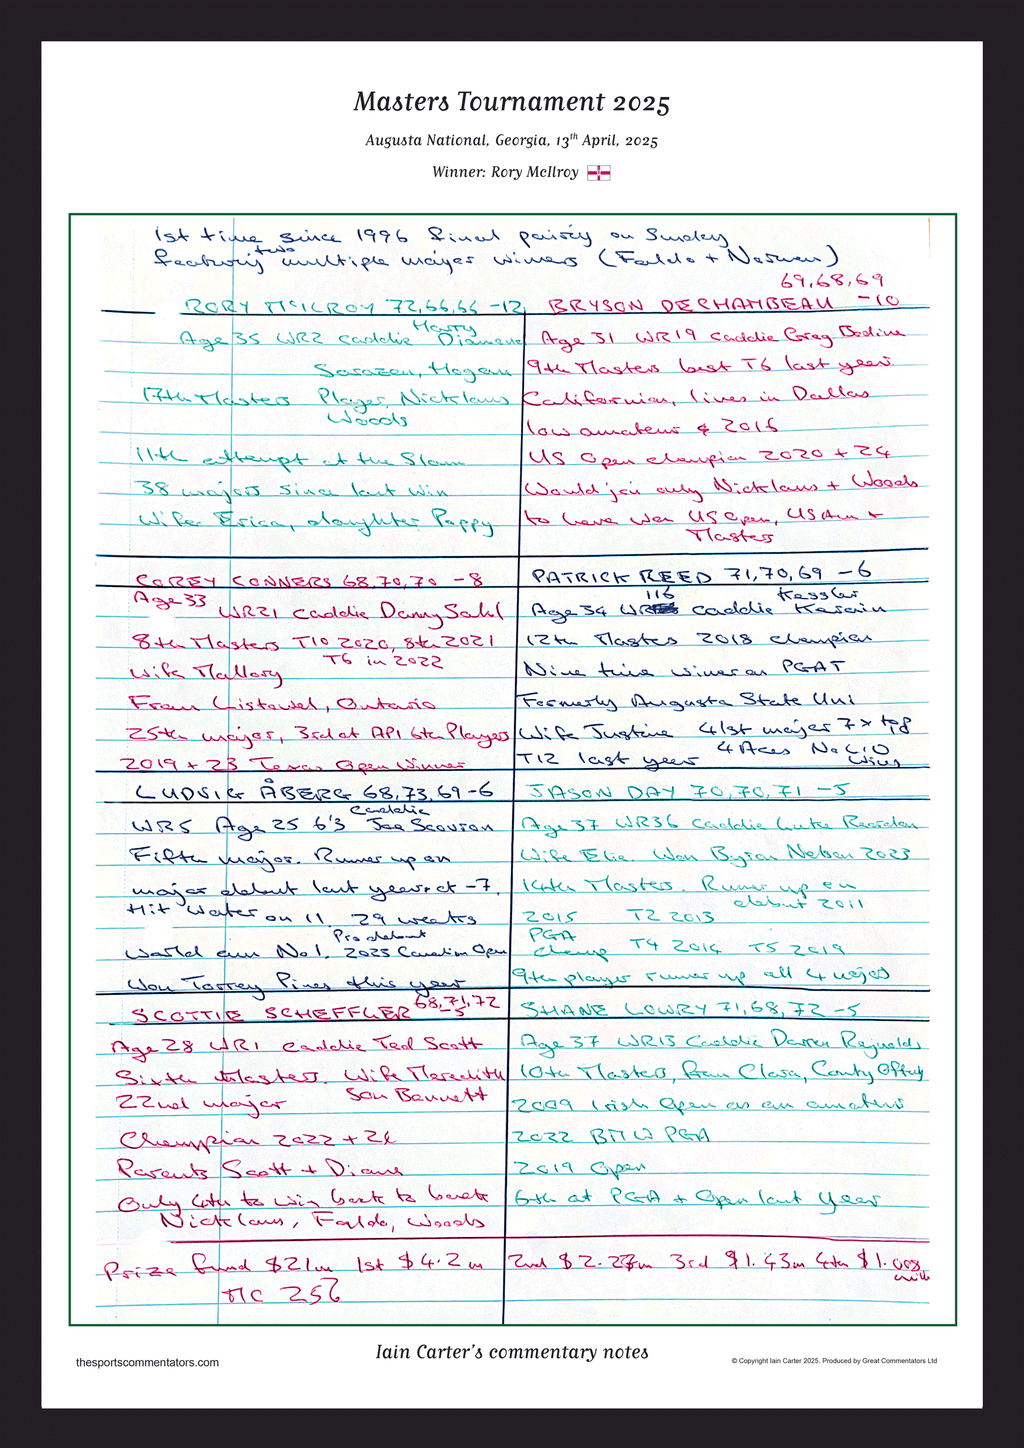 Masters Tournament 2025
Augusta National, Georgia, 13th April, 2025
Winner: Rory McIlroy
1st time since 1996 final pairing on Sunday
featuring two multiple major winners (Faldo + Norman)
RORY McILROY 72,66,66 -12
Age 35 WR2 caddie Harry Diamond
Sarazen, Hogan
17th Masters Player, Nicklaus
Woods
11th attempt at the Slam
38 majors since last win
Wife Erica, daughter Poppy
69,68,69
BRYSON DECHAMBEAU -10
Age 31 WR19 caddie Greg Bodine
9th Masters best T6 last year
Californian, lives in Dallas
low amateur 2016
US Open champion 2020 + 24
Would join only Nicklaus + Woods
to have won US Open, US Am +
Masters
COREY CONNERS 68,70,70 -8
Age 33 WR21 caddie Danny Sahl
8th Masters T10 2020, 8th 2021
T6 in 2022
Wife Mallory
From Listowel, Ontario
25th major, 3rd at API 6th Players
2019 + 23 Texas Open Winner
PATRICK REED 71,70,69 -6
116 Kessler
Age 34 WR caddie Karain
12th Masters 2018 champion
Nine time winner on PGAT
Formerly Augusta State Uni
Wife Justine 41st major 7 x top
4 Aces No LIV
T12 last year Wins
LUDVIG ÅBERG 68,73,69 -6
caddie
WR5 Age 25 6'3 Joe Scovron
Fifth major. Runner up on
major debut last year at -7.
Hit water on 11 29 weeks
Pro debut
World am No 1. 2023 Canadian Open
Won Torrey Pines this year
JASON DAY 70,70,71 -5
Age 37 WR36 caddie Luke Reardon
Wife Ellie. Won Byron Nelson 2023
14th Masters. Runner up on
debut 2011
2015 T2 2013
PGA
champ T4 2014 T5 2019
9th player runner up all 4 majors
SCOTTIE SCHEFFLER 68,71,72 -5
Age 28 WR1 caddie Ted Scott
Sixth Masters. Wife Meredith
22nd major Son Bennett
Champion 2022 + 24
Parents Scott + Diane
Only 4th to win back to back
Nicklaus, Faldo, Woods
SHANE LOWRY 71,68,72 -5
Age 37 WR13 Caddie Darren Reynolds
10th Masters, from Clara, County Offaly
2009 Irish Open as an amateur
2022 BMW PGA
2019 Open
6th at PGA + Open last year
Prize fund $21m 1st $4.2m 2nd $2.27m 3rd $1.43m 4th $1.008
mill
MC 25%
Iain Carter's commentary notes
thesportscommentators.com
© Copyright Iain Carter 2025. Produced by Great Commentators Ltd